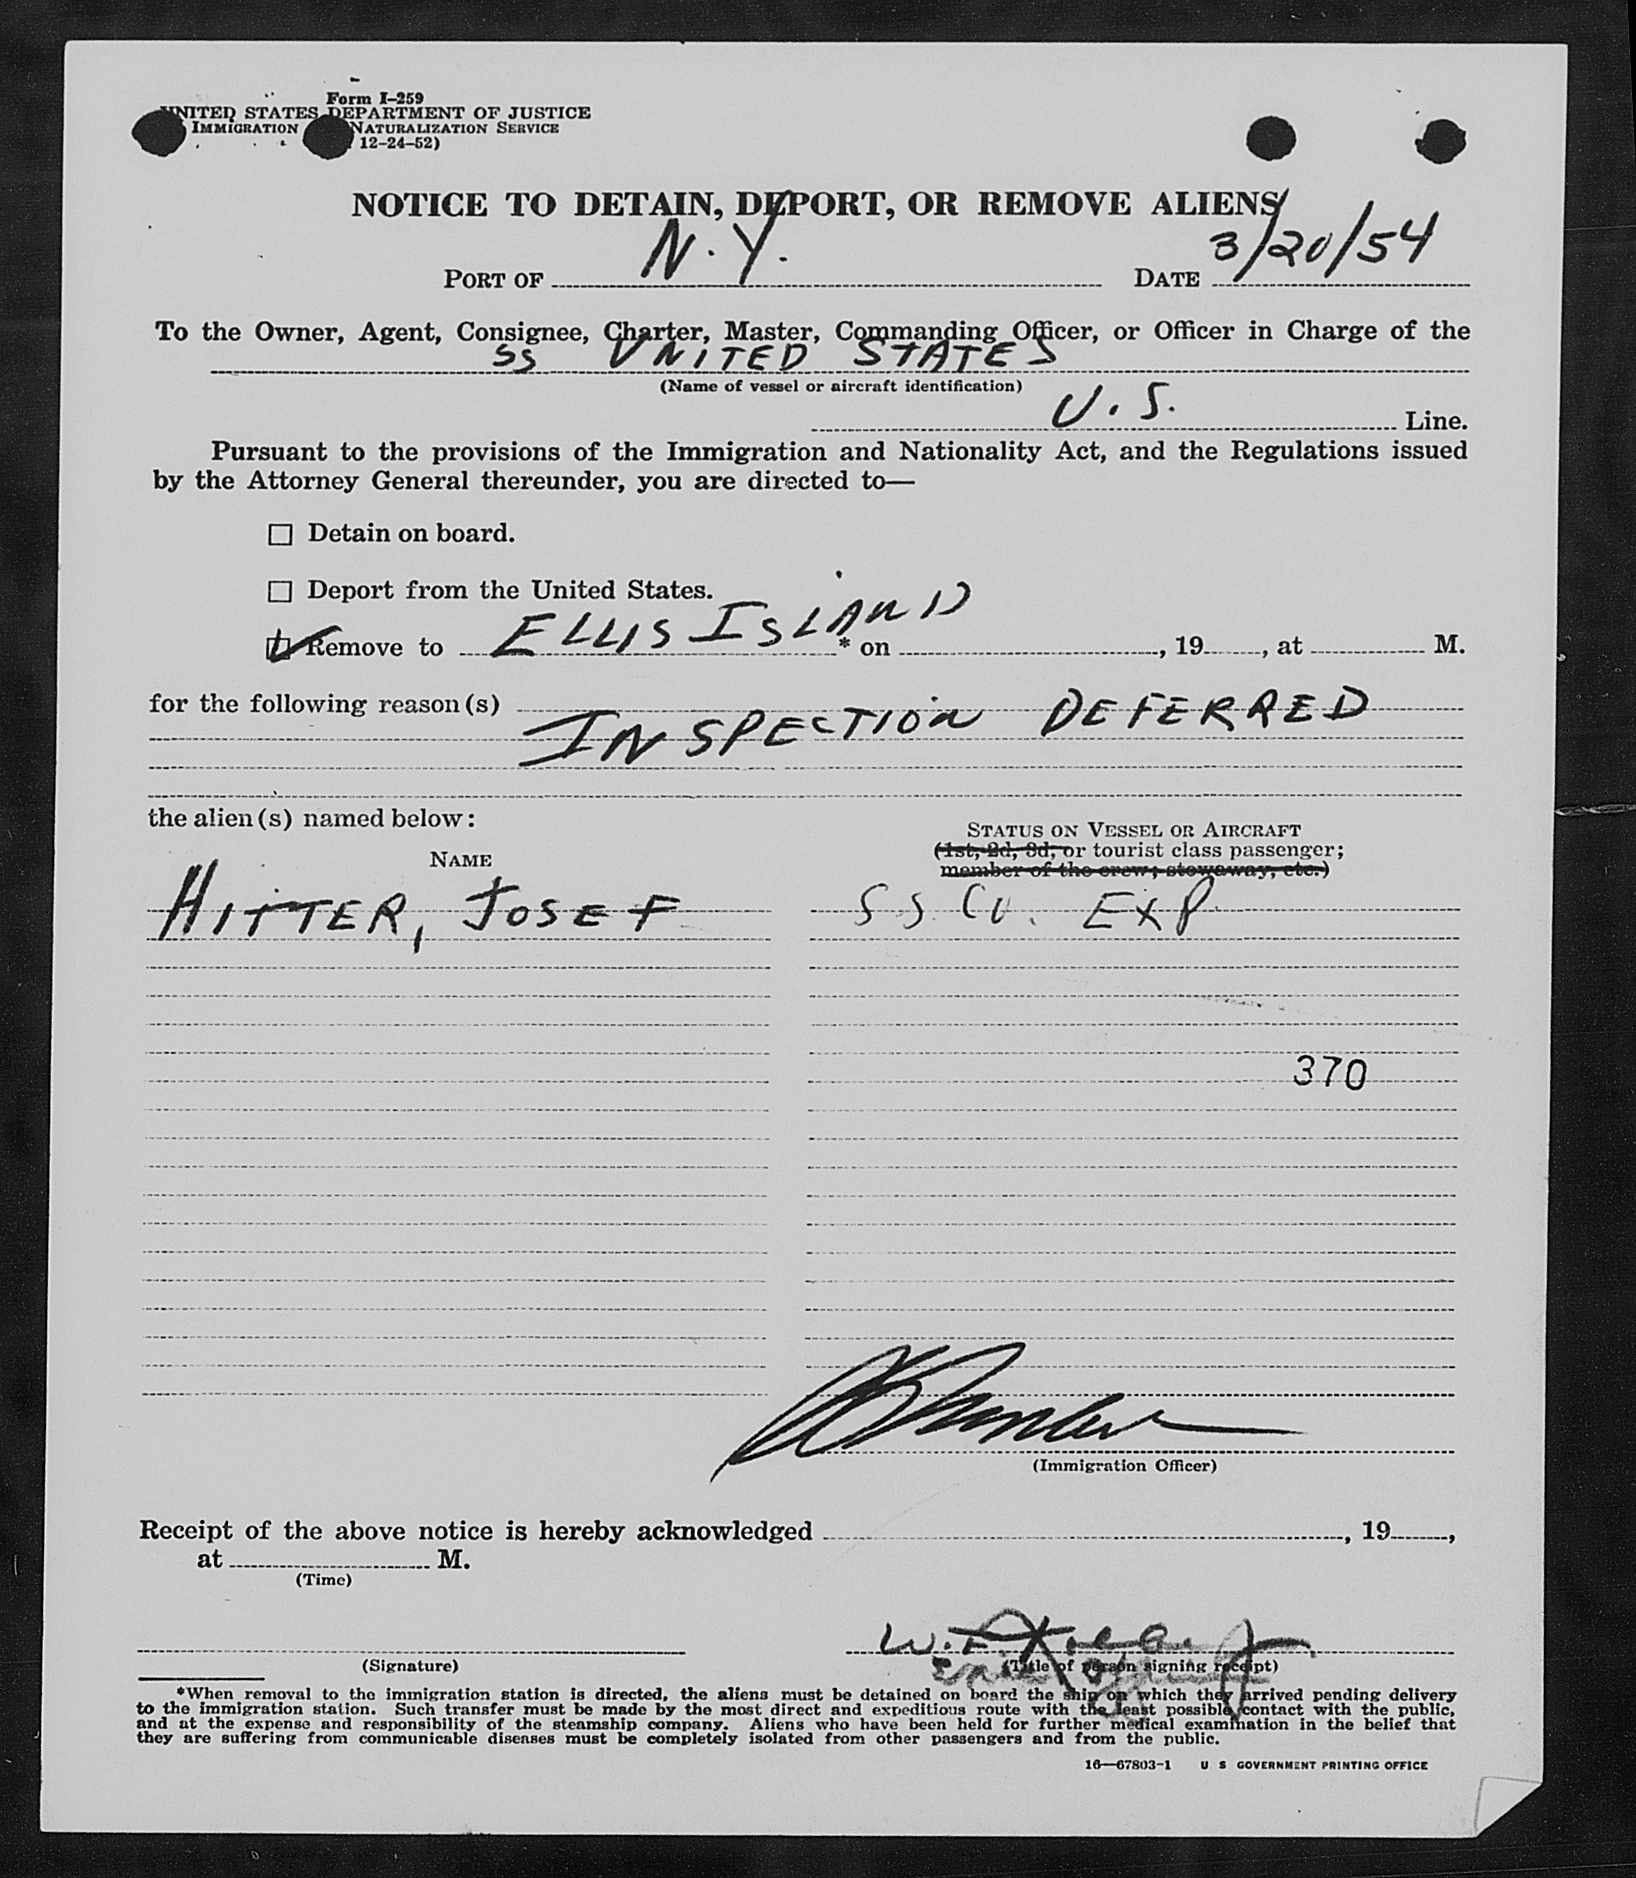 Form I-259
UNITED STATES DEPARTMENT OF JUSTICE
IMMIGRATION NATURALIZATION SERVICE
12-24-52)
NOTICE TO DETAIN, DEPORT, OR REMOVE ALIENS
PORT OF N.Y. DATE 3/20/54
To the Owner, Agent, Consignee, Charter, Master, Commanding Officer, or Officer in Charge of the
SS UNITED STATES
(Name of vessel or aircraft identification)
U.S. Line.
Pursuant to the provisions of the Immigration and Nationality Act, and the Regulations issued
by the Attorney General thereunder, you are directed to—
Detain on board.
Deport from the United States.
Remove to ELLIS ISLAND * on , 19 , at M.
for the following reason(s)
INSPECTION DEFERRED
the alien(s) named below:
STATUS ON VESSEL OR AIRCRAFT
NAME (1st, 2d, 3d, or tourist class passenger;
member of the crew; stowaway, etc.)
HITTER, JOSEF S.S. Co. EXP
370
(Immigration Officer)
Receipt of the above notice is hereby acknowledged , 19 ,
at M.
(Time)
W.
(Signature) (Title of person signing receipt)
*When removal to the immigration station is directed, the aliens must be detained on board the ship on which they arrived pending delivery
to the immigration station. Such transfer must be made by the most direct and expeditious route with the least possible contact with the public,
and at the expense and responsibility of the steamship company. Aliens who have been held for further medical examination in the belief that
they are suffering from communicable diseases must be completely isolated from other passengers and from the public.
16—67803-1 U S GOVERNMENT PRINTING OFFICE